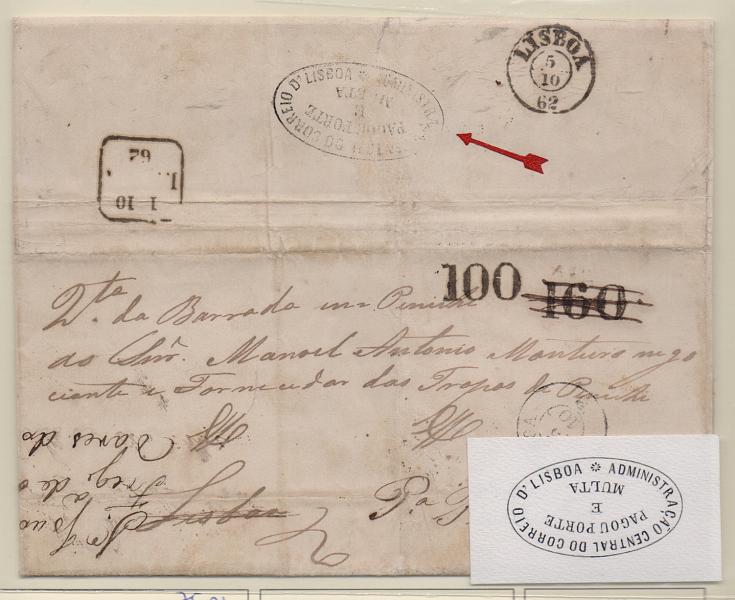 LISBOA
5
10
62
ADMINISTRAÇÃO CENTRAL DO CORREIO D'LISBOA
PAGOU PORTE
E
MULTA
1 10
L.
62
100
160
Qta. da Barrada em Peniche
ao Snr. Manoel Antonio Monteiro nego
ciante e Fornecedor das Tropas de Peniche
Lisboa
Pa. P
ADMINISTRAÇÃO CENTRAL DO CORREIO D'LISBOA
PAGOU PORTE
E
MULTA